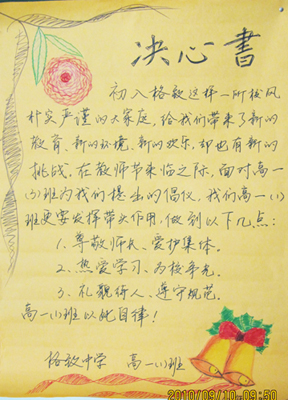 决心書
初入格致这样一所校风
朴实严谨的大家庭，给我们带来了新的
教育、新的环境、新的欢乐，却也有新的
挑战。在教师节来临之际，面对高一
(3)班为我们提出的倡仪，我们高一(1)
班更要发挥带头作用，做到以下几点：
1.尊敬师长、爱护集体。
2.热爱学习、为校争光。
3.礼貌待人、遵守规范。
高一(1)班以此自律！
格致中学 高一(1)班
2010/09/10 09:50